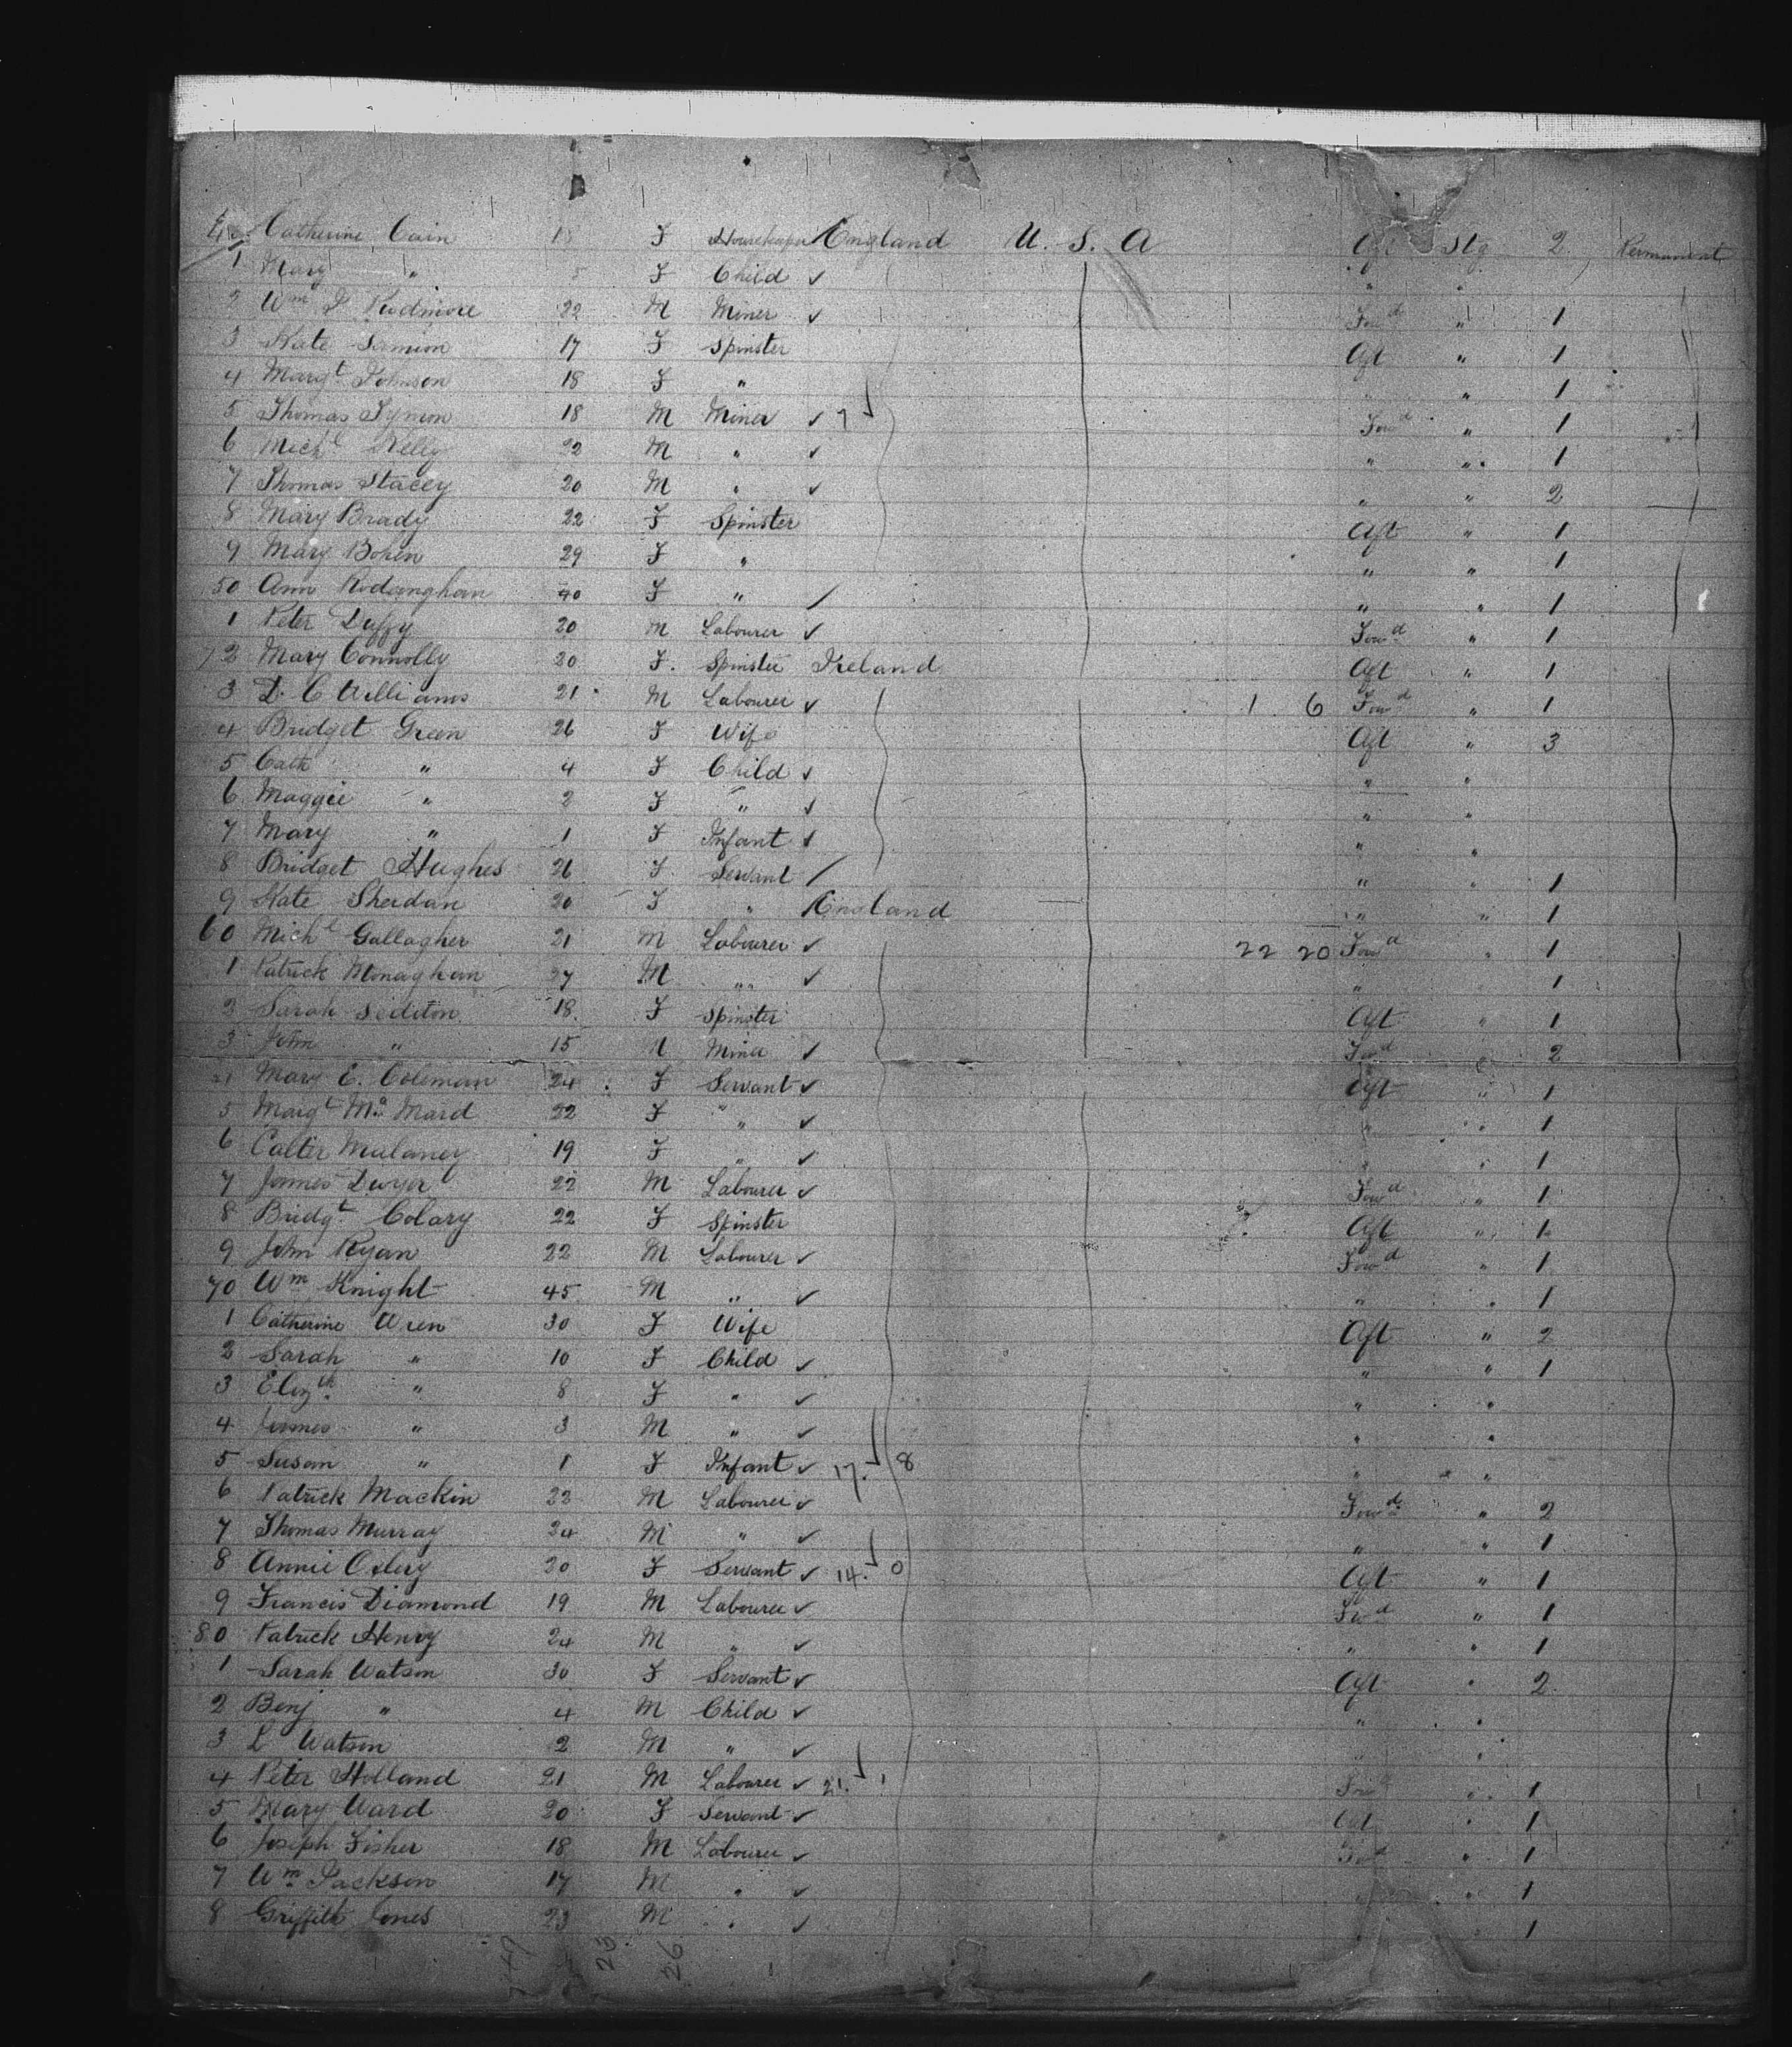 Catherine Cain F Housekeeper England U. S. A Aft Stg 2 Permanent
1 Mary " 5 F Child ✓ " "
2 Wm 22 M Miner ✓ Fowd " 1
3 Kate 17 F Spinster Aft " 1
4 Margt Johnson 18 F " " " 1
5 Thomas Tymon 18 M Miner ✓ 7 ✓ Fowd " 1
6 Michl Kelly 22 M " ✓ " " 1
7 Thomas Stacey 20 M " ✓ " " 2
8 Mary Brady 22 F Spinster Aft " 1
9 Mary Bohen 29 F " " " 1
50 Ann 40 F " " " 1
1 Peter Duffy 20 M Labourer ✓ Fowd " 1
2 Mary Connolly 20 F. Spinster Ireland Aft " 1
3 D. C Williams 21 M Labourer ✓ 1 6 Fowd " 1
4 Bridget Green 26 F Wife Aft " 3
5 Cath " 4 F Child ✓ " "
6 Maggie " 2 F " ✓ " "
7 Mary " 1 F Infant ✓ " "
8 Bridget Hughes 26 F Servant " " 1
9 Kate Sherdan 20 F " England " " 1
60 Michl Gallagher 21 M Labourer ✓ 22 20 Fowd " 1
1 Patrick Monaghan 27 M " ✓ " 1
2 Sarah Sediton 18 F Spinster Aft " 1
3 John " 15 M Miner ✓ Fowd " 2
4 Mary E. Coleman 24 F Servant ✓ Aft " 1
5 Margt 22 F " ✓ " " 1
6 Mulaney 19 F " ✓ " " 1
7 James Dwyer 22 M Labourer ✓ Fowd " 1
8 Bridgt Colary 22 F Spinster Aft " 1
9 John Ryan 22 M Labourer ✓ Fowd " 1
70 Wm Knight 45 M " ✓ " " 1
1 Catherine Wren 30 F Wife Aft " 2
2 Sarah " 10 F Child ✓ " " 1
3 Elizth " 8 F " ✓ " "
4 James " 3 M " ✓ " "
5 Susan " 1 F Infant ✓ 17. ✓ 8 " "
6 Patrick Mackin 22 M Labourer ✓ Fowd " 2
7 Thomas Murray 24 M " ✓ " " 1
8 Annie 20 F Servant ✓ 14. ✓ 0 Aft " 1
9 Francis Diamond 19 M Labourer ✓ Fwd " 1
80 Patrick Henry 24 M " ✓ " " 1
1 Sarah Watson 30 F Servant ✓ Aft " 2
2 Benj " 4 M Child ✓ " "
3 L Watson 2 M " ✓ " "
4 Peter Holland 21 M Labourer ✓ 21. ✓ 1 Fowd " 1
5 Mary Ward 20 F Servant ✓ Aft " 1
6 Joseph Fisher 18 M Labourer ✓ " 1
7 Wm Jackson 17 M " ✓ " " 1
8 Griffith Jones 23 M " ✓ " 1
23 26